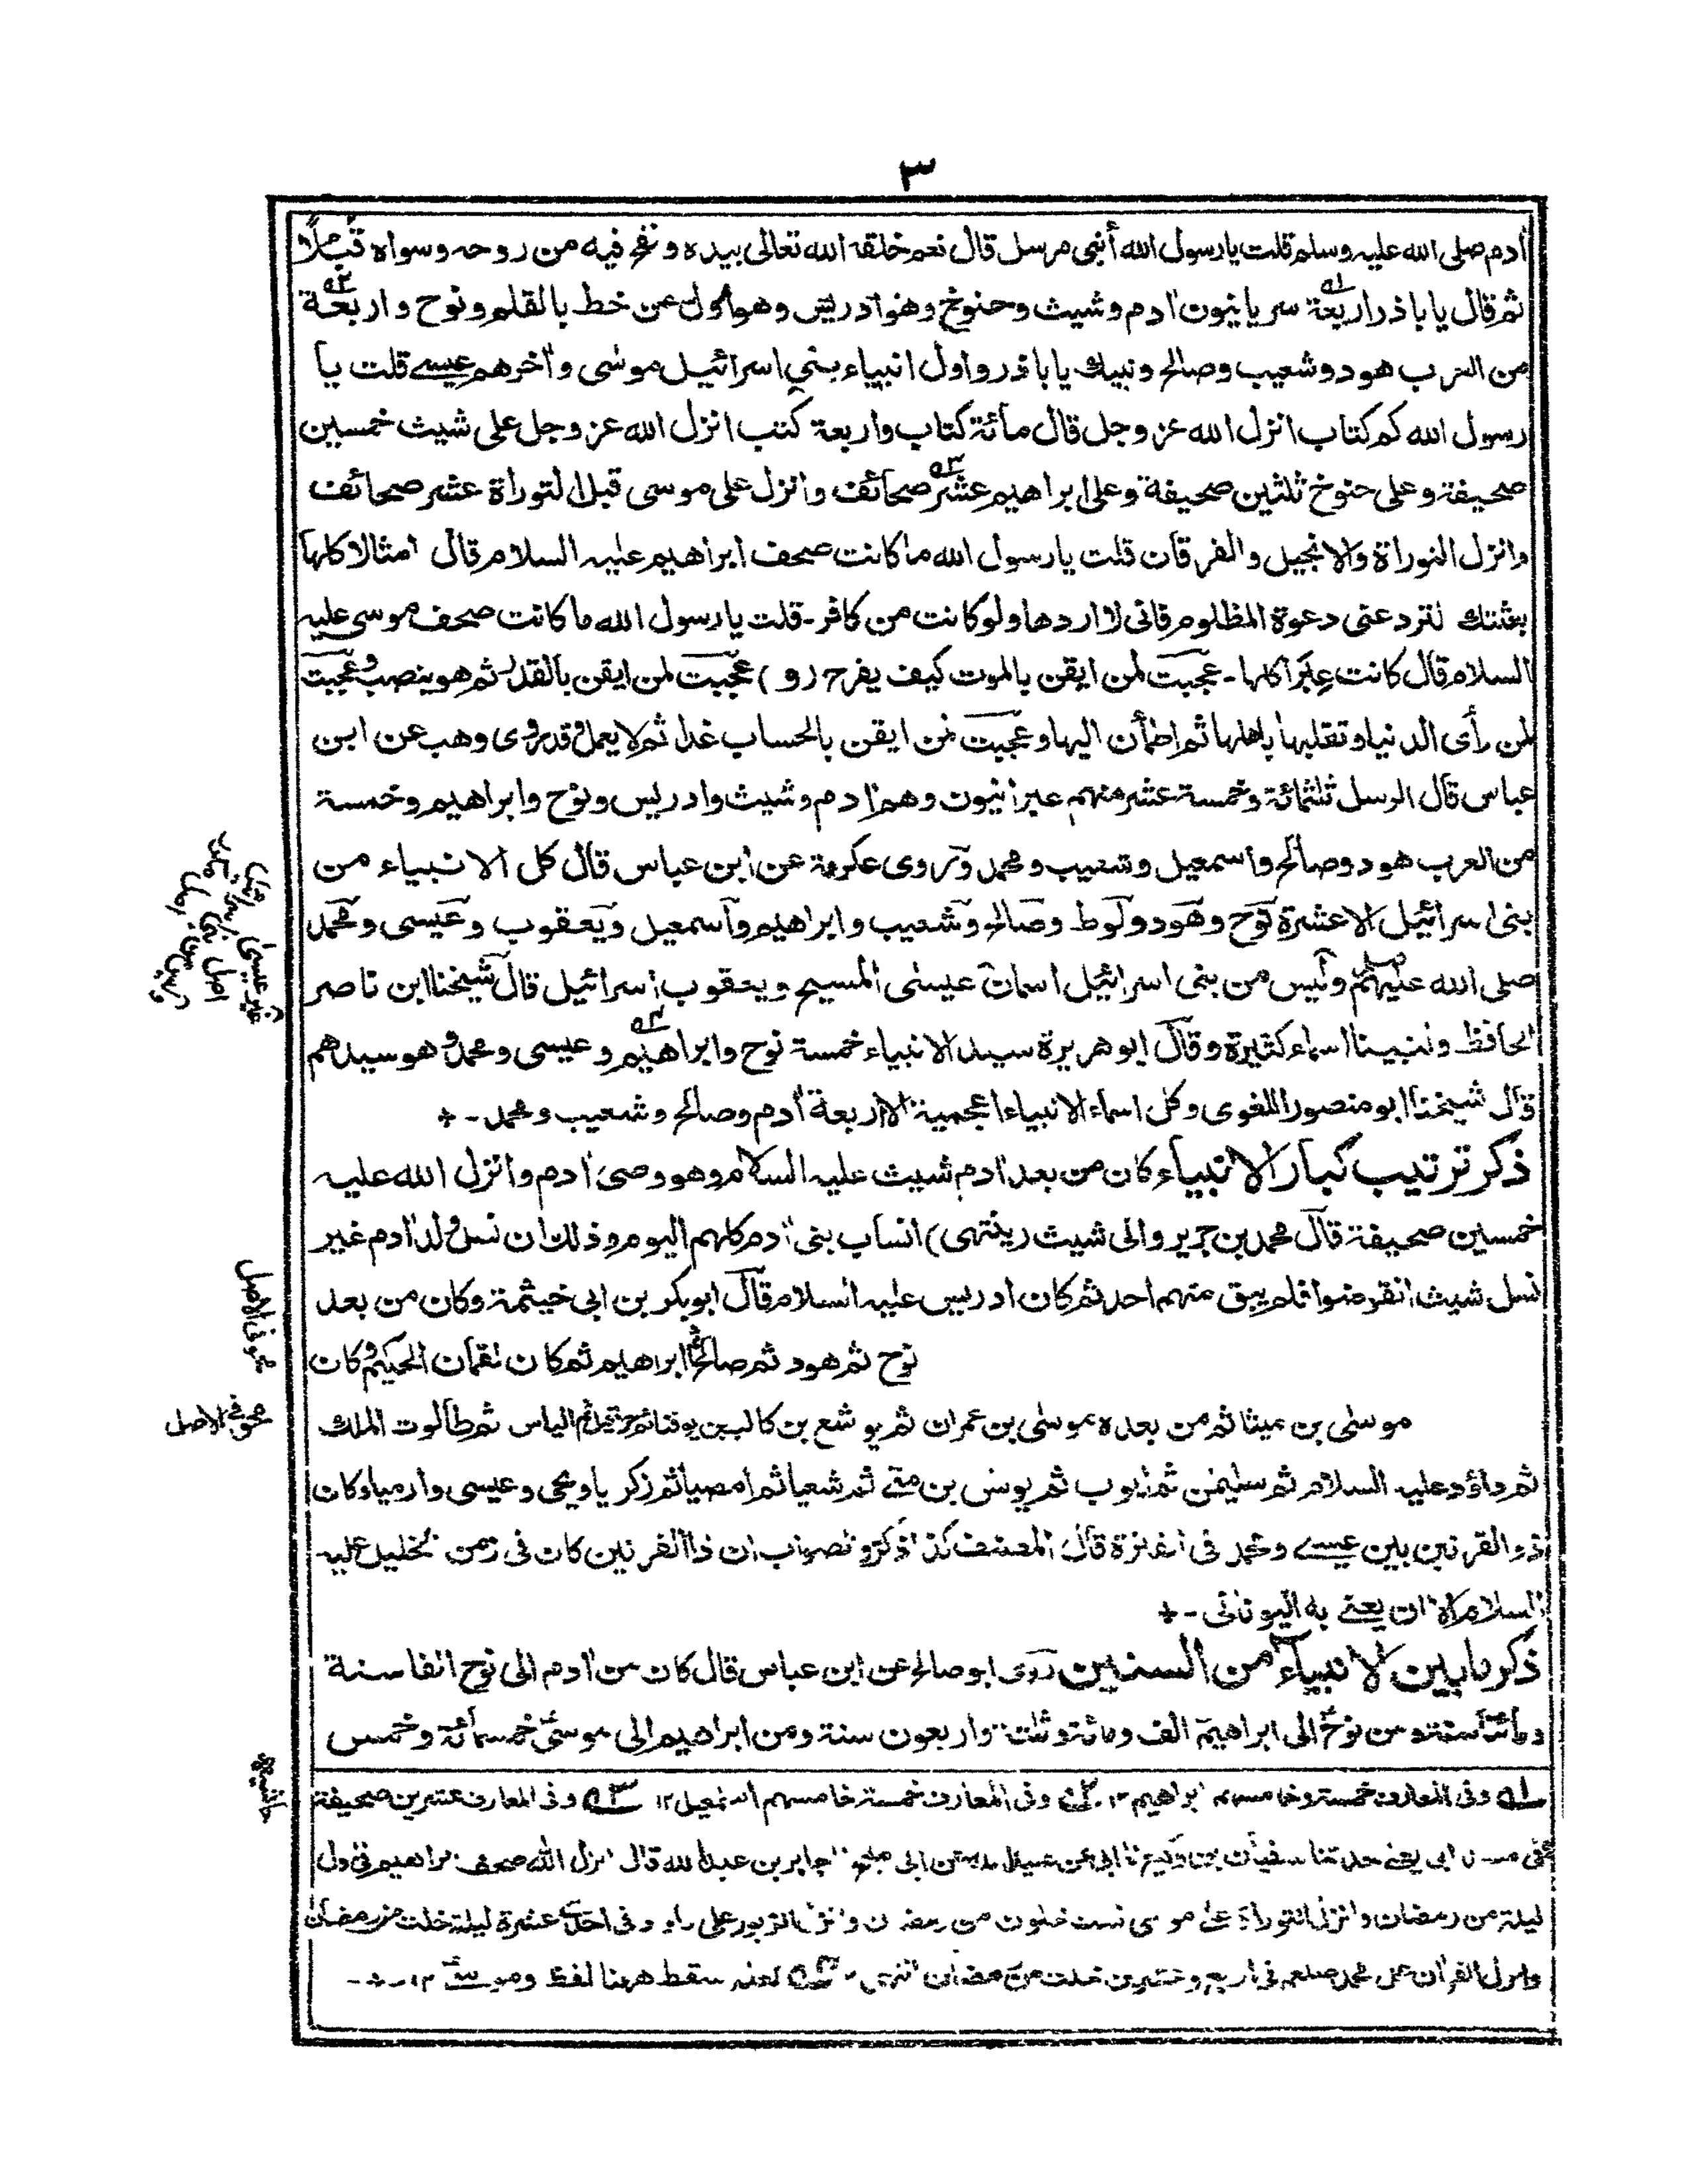 ٣
اٰدم صلى الله عليه وسلم قلت يا رسول الله أنبى مرسل قال نعم خلقه الله تعالى بيده و نفخ فيه من روحه وسواه قُبُلًا
ثم قال يا باذر اربعة سريانيون اٰدم وشيث وحنوخ وهو ادريس وهو اول من خط بالقلم ونوح و اربعة
من العرب هود وشعيب وصالح ونبيك يا باذر واول انبياء بنى اسرائيل موسٰى واٰخرهم عيسے قلت يا
رسول الله كم كتاب انزل الله عز وجل قال مأئة كتاب واربعة كتب انزل الله عز وجل على شيث خمسين
صحيفة وعلى حنوخ ثلثين صحيفة وعلى ابراهيم عشر صحائف وانزل على موسى قبل التوراة عشر صحائف
وانزل التوراة والانجيل والفرقان قلت يا رسول الله ما كانت صحف ابراهيم عليه السلام قال امثالا كلها
بعثتك لترد عنى دعوة المظلوم فانى لا اردها ولو كانت من كافر ـ قلت يا رسول الله ما كانت صحف موسى عليه
السلام قال كانت عِبَرًا كلها ـ عجبت لمن ايقن بالموت كيف يفرح (و) عجبت لمن ايقن بالقدر ثم هو ينصب وعجبت
لمن رأى الدنيا وتقلبها باهلها ثم اطمأن اليها وعجبت لمن ايقن بالحساب غدا ثم لا يعمل وقد روى وهب عن ابن
عباس قال الرسل ثلثمائة وخمسة عشر منهم عبرانيون وهم اٰدم وشيث وادريس ونوح وابراهيم وخمسة
من العرب هود وصالح واسمعيل وشعيب ومحمد وروى عكرمة عن ابن عباس قال كل الانبياء من
بنى اسرائيل الا عشرة نوح وهود ولوط وصالح وشعيب وابراهيم واسمعيل ويعقوب وعيسى ومحمد
صلى الله عليهم وليس من بنى اسرائيل اسمان عيسٰى المسيح ويعقوب اسرائيل قال شيخنا ابن ناصر
الحافظ ولنبينا اسماء كثيرة وقال ابو هريرة سيد الانبياء خمسة نوح وابراهيم وعيسى ومحمد وهو سيدهم
قال شيخنا ابو منصور اللغوى وكل اسماء الانبياء اعجمية الا اربعة اٰدم وصالح وشعيب ومحمد ـ
ذكر ترتيب كبار الانبياء كان من بعد اٰدم شيث عليه السلام وهو وصى اٰدم وانزل الله عليه
خمسين صحيفة قال محمد بن جرير والى شيث (ينتهى) انساب بنى اٰدم كلهم اليوم وذلك ان نسل ولد اٰدم غير
نسل شيث انقرضوا فلم يبق منهم احد ثم كان ادريس عليه السلام قال ابو بكر بن ابى خيثمة وكان من بعد
نوح ثم هود ثم صالح ثم ابراهيم ثم كان لقمان الحكيم وكان
محو فى الاصل
موسٰى بن ميثا ثم من بعده موسٰى بن عمران ثم يوشع بن كالب بن يوقنا ثم حزقيل ثم الياس ثم طالوت الملك
محو فى الاصل
ثم داؤد عليه السلام ثم سليمٰن ثم ايوب ثم يونس بن متے ثم شعيا ثم امصيا ثم زكريا ويحيى وعيسى وارمياء وكان
ذو القرنين بين عيسے ومحمد فى الفترة قال المصنف كذا ذكر والصواب ان ذا القرنين كان فى زمن الخليل عليه
السلام الا ان يعنے به اليونانى ـ
ذكر ما بين الانبياء من السنين روى ابو صالح عن ابن عباس قال كان من اٰدم الى نوح الفا سنة
ومأتا سنة ومن نوح الى ابراهيم الف ومائة وثلث واربعون سنة ومن ابراهيم الى موسٰى خمسمائة وخمس
حاشيه
١ وفى المعارف خمسة وخامسهم ابراهيم ١٢ ٢ وفى المعارف خمسة خامسهم اسمعيل ١٢ ٣ وفى المعارف عشرين صحيفة
ابى يعنے حدثنا سفيان بن وكيع نا ابى عن عبيد الله عن ابى جابر بن عبد الله قال انزل الله صحف ابراهيم فى اول
ليلة من رمضان وانزل التوراة على موسى لست خلون من رمضان وانزل الزبور على داود فى احدے عشرة ليلة خلت من رمضان
وانزل القراٰن على محمد صلعم فى اربع وعشرين خلت من رمضان انتهى ٤ لعله سقط ههنا لفظ وموسے ١٢ ـ